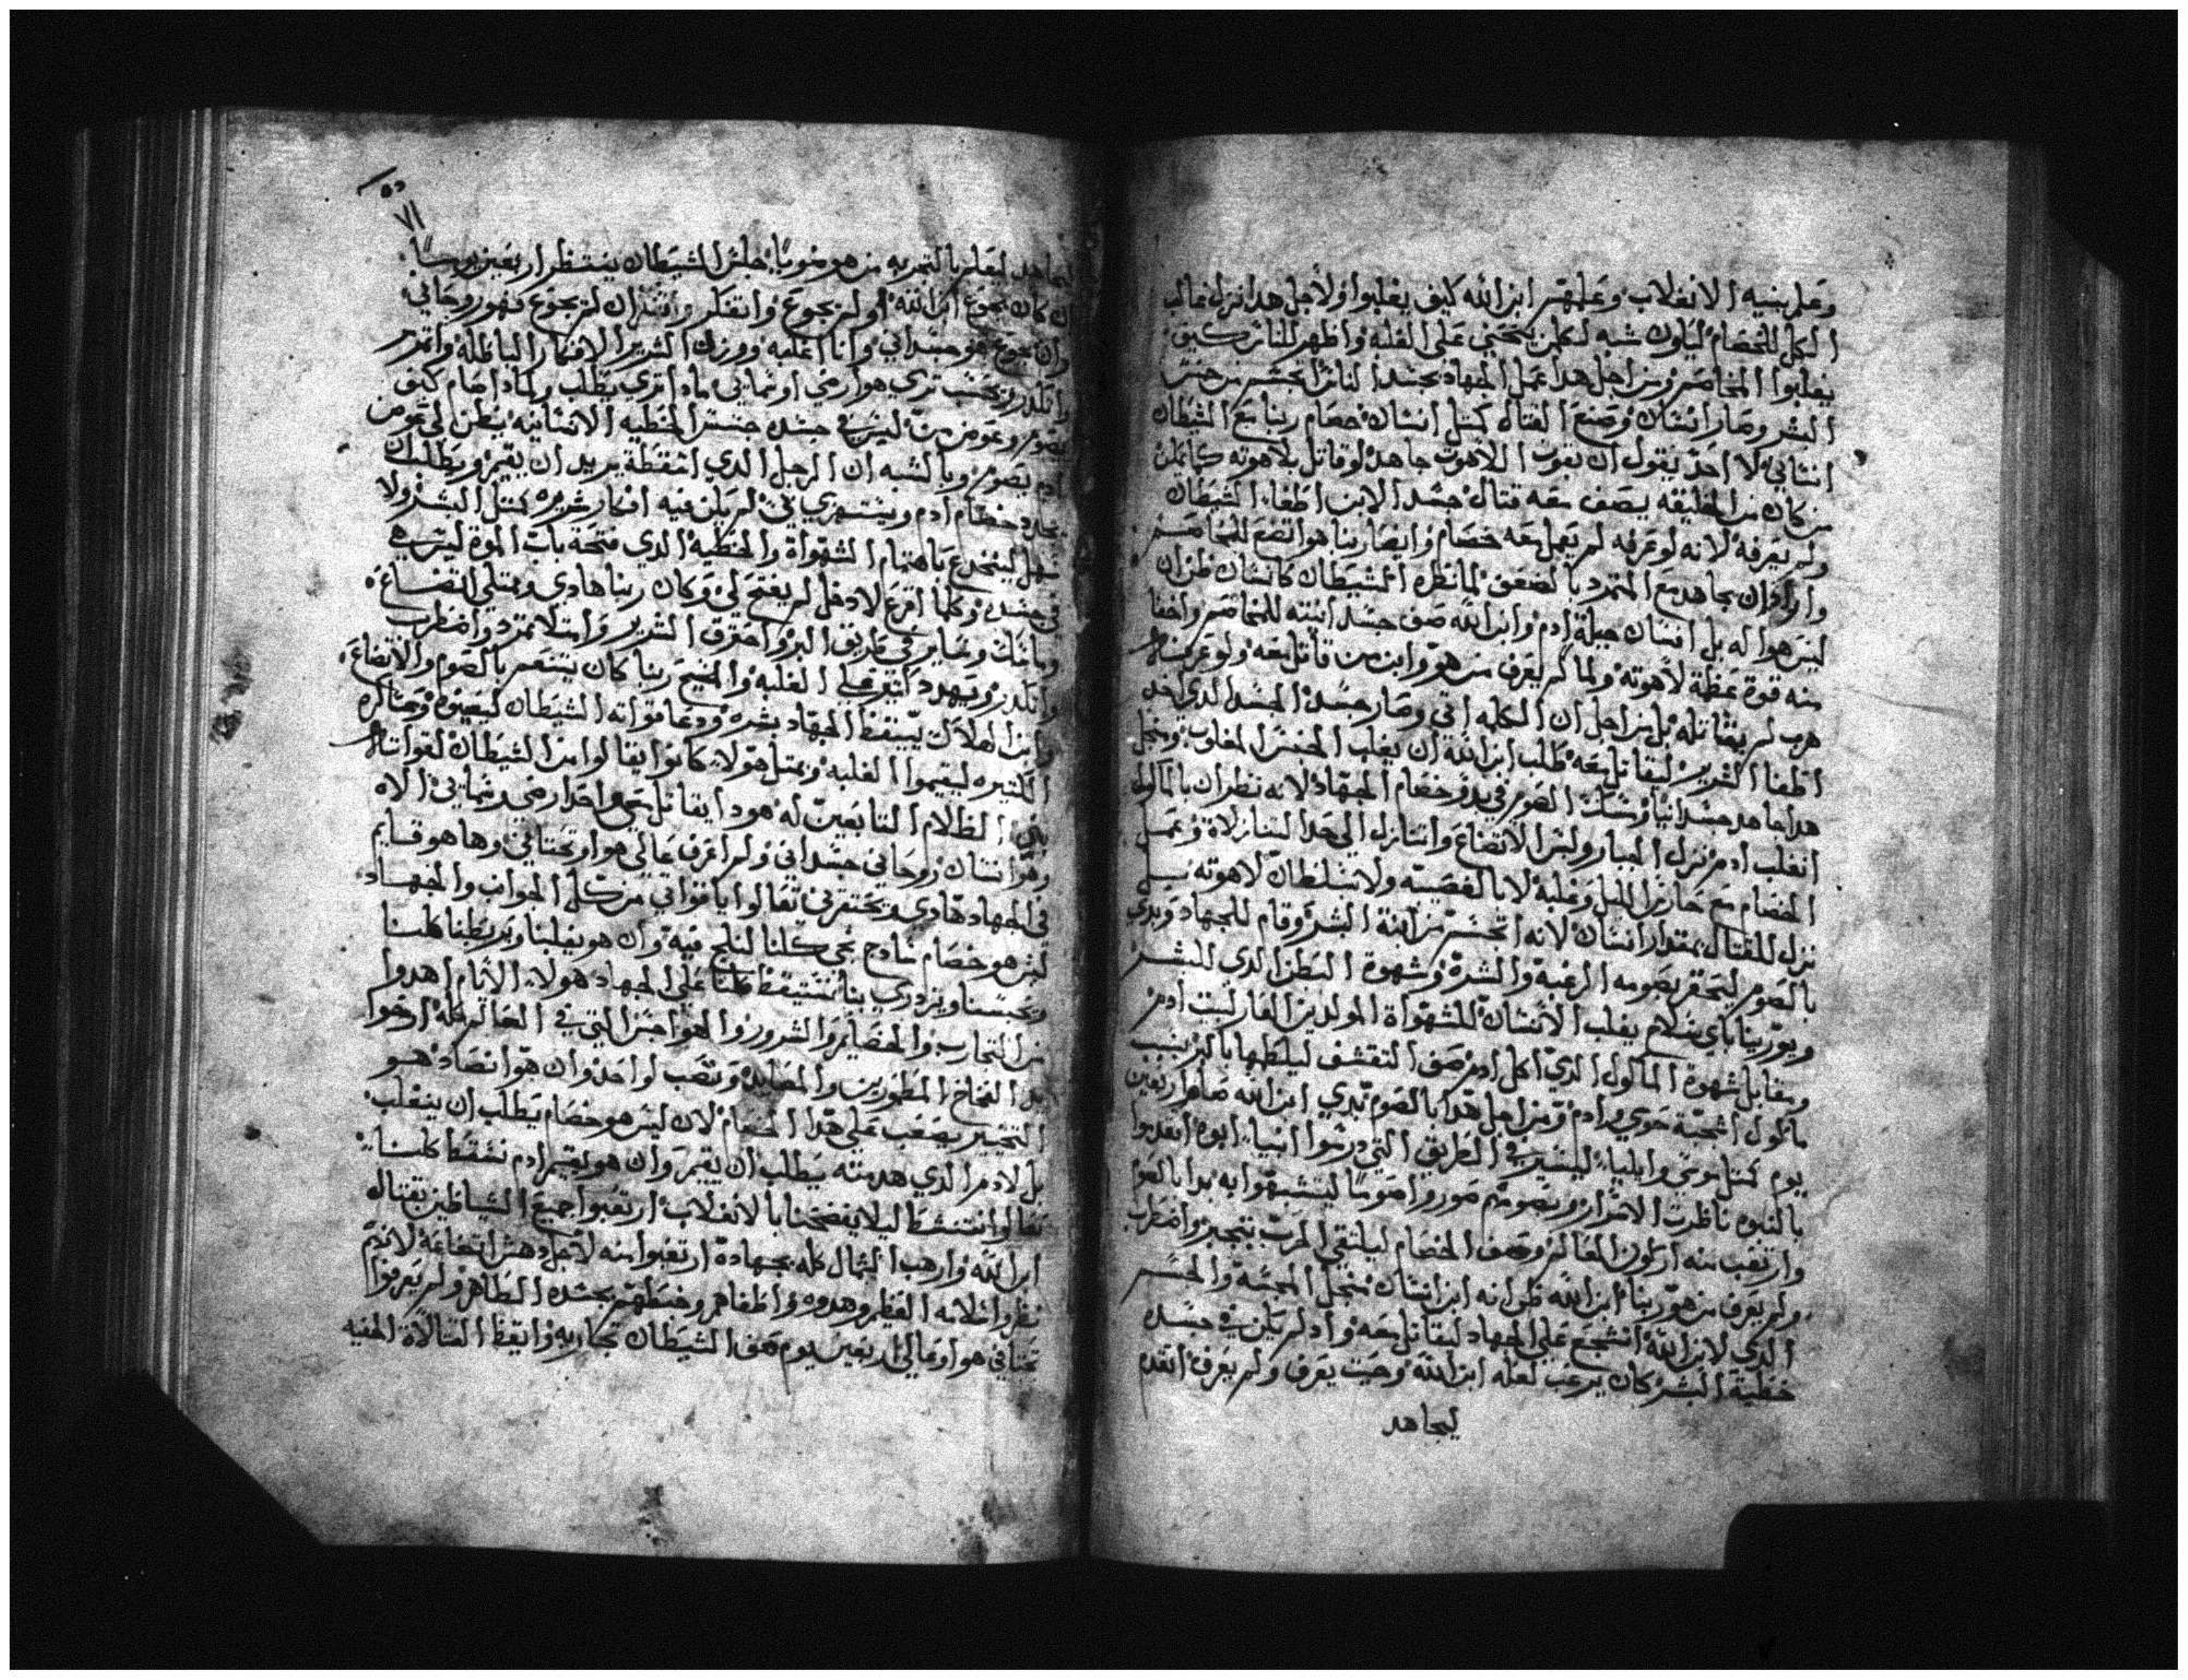 وعلم بنيه الانغلاب وعلمهم ابن الله كيف يغلبوا ولاجل هدا نزل غالب
الكل للخصام ليكون شبه لكلمن يحتمي على الغلبه واظهر للناس كيف
يغلبوا المخاصم ومن اجل هدا عمل الجهاد بجسد الناس اتجسم من جنس
البشر وصار انسان وصنع القتال كمتل انسان خصام ربنا مع الشيطان
انساني لا احد يقول ان بقوت اللاهوت جاهد لو قاتل بلاهوته كمالمن
من كان من الخليقه يصف معه قتال جسد الابن اطغاه الشيطان
ولم يعرفه لانه لو عرفه لم يعمل معه خصام وايضا ربنا هو اتضع للمخاصم
واراد ان يجاهد مع المتمرد بالضعف لما نظره الشيطان كانسان ظن ان
ليس هو اله بل انسان جبلة ادم وابن الله صف جسد انيته للمخاصم واخفا
منه قوة عظمة لاهوته ولما لم يعرف من هو وابن من قاتل معه ولو عرفه
هرب لم يقاتله بل من اجل ان الكلمه اتى وصار جسد الجسد الدي اخد
اطغا الشرير ليقاتل معه طلب ابن الله ان يغلب الجنس المغلوب ومنجل
هدا جاهد جسدانيا وسكت الصوم في بدو خصام الجهاد لانه نظر ان بالماكول
انغلب ادم نزل الجبار ولبس الاتضاع واتنازل الى حد التنازلاة وعمل
الخصام مع خازن الليل وغلبه لا بالغصبيه ولا بسلطان لاهوته بل
نزل للقتال بمقدار انسان لانه اتجسم من ابنة البشر وقام للجهاد وبدى
بالصوم ليحقر بصومه الرغبه والشره وشهوة البطن الدي للبشر
ويورينا باي سلام يغلب الانسان للشهواة المولدين العار لبيت ادم
ومقابل شهوة الماكول الدي اكل ادم صف التقشف ليلطها بالبر بسبب
ماكول اشجبة حوى وادم ومن اجل هدا بالصوم بدي ابن الله صام اربعين
يوم كمتل موسى وايليا ليسير في الطريق التي درسوا انبيا ابوه اتقدموا
بالنبوه ناظرت الاسرار وبصومهم صوروا صوما ليتشبهوا به بدا بالصوم
وارتعب منه اركون العالم وصف الخصام ليلتقي المرت بتجبر واضطرب
ولم يعرف من هو ربنا ابن الله ظن انه ابن انسان منجل المجسة والجسم
الدي لابن الله اتشجع على الجهاد ليقاتل معه واد لم يكن في جسده
خطية البشر كان يرعب لعله ابن الله وحيت يعرف ولم يعرف اتقدم
ليجاهد
ليجاهد ليعلم بالتجربه من هو صوما جلس الشيطان ينتظر اربعين يوما
ان كان يجوع ابن الله او لم يجوع واتفكر وافتكر ان لم يجوع فهو روحاني
وان يجوع هو جسداني وانا اغلبه وورزل الشرير الافكار الباطله واتمرمر
واتكدر وتحسب ترى هو ارضي او سمايي مادا ترى يطلب ولمادا صام كيف
يصوم وعوض من ليس في جسده جنس الخطيه الانسانيه يظن لي عوض
ادم يصوم وبالشبه ان الرجل الدي اسقطة يريد ان يقيم ويطلب
يجدد خصام ادم ويستهزي بي لم يكن فيه افكار شريره كمتل البشر ولا
سهل لينخدع باهتمام الشهواة والخطيه الدي فتحة باب الموة ليس هي
في جسده وكلما اقرع لادخل لم يفتح لي وكان ربنا هادي وممتلي اتضاع
وساكت وساير في طريق البر واحترق الشرير وامتلا تمرد واضطرب
واتكدر ويهدد كيتوصل الغلبه والمسيح ربنا كان يتنعم بالصوم والاتضاع
وابن الهلاك يستيقظ الجهاد بشره ودعا قواته الشيطان ليعينوه وعساكره
الكتيره ليقيموا الغلبه وبمتل هولاء كانوا يقالوا من الشيطان لقواته
بني الظلام التابعين له هودا يقاتل معي واحد ارضي وسمايي الاه
وهو انسان روحاني جسداني ولم اعرف عالي هو ام تحتاني وها هو قايم
في الجهاد هادي ويحتقرني تعالوا يا قواتي من كل الجوانب والجهاد
ليس هو خصام سادج نحي كلنا لنلج فيه وان هو يغلبنا ويربطنا كلنا
ويحبسنا ويزدري بنا نستيقظ كلنا على الجهاد هولاء الاتام اهدوا
من التجارب والخصايم والشرور والهواجس التي في العالم كله ارخوا
بدا الفخاخ المطمورين والمصايد وتتعب لواحد وان هو انصاد هو
التخيير يصعب على هدا الخصام لان ليس هو خصام يطلب ان ينغلب
بل لادم الدي هدمته يطلب ان يقيم وان هو يقيم ادم نسقط كلنا
تعالوا نتنشط ليلا يفضحنا بالانغلاب ارتعبوا جميع الشياطين بقتال
ابن الله وارهب الشمال كله بجهاده ارتعبوا منه لاجل دهش اتضاعه لانهم
نظروا تلاته العظم وهدوه واطغاهم وخبطهم بجسده الطاهر ولم يعرفوا
تحتاني هو او عالي اربعين يوم صف الشيطان تجاربه وايقظ القتالاة الخفيه